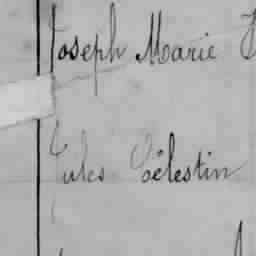 Joseph Marie
Jules Célestin